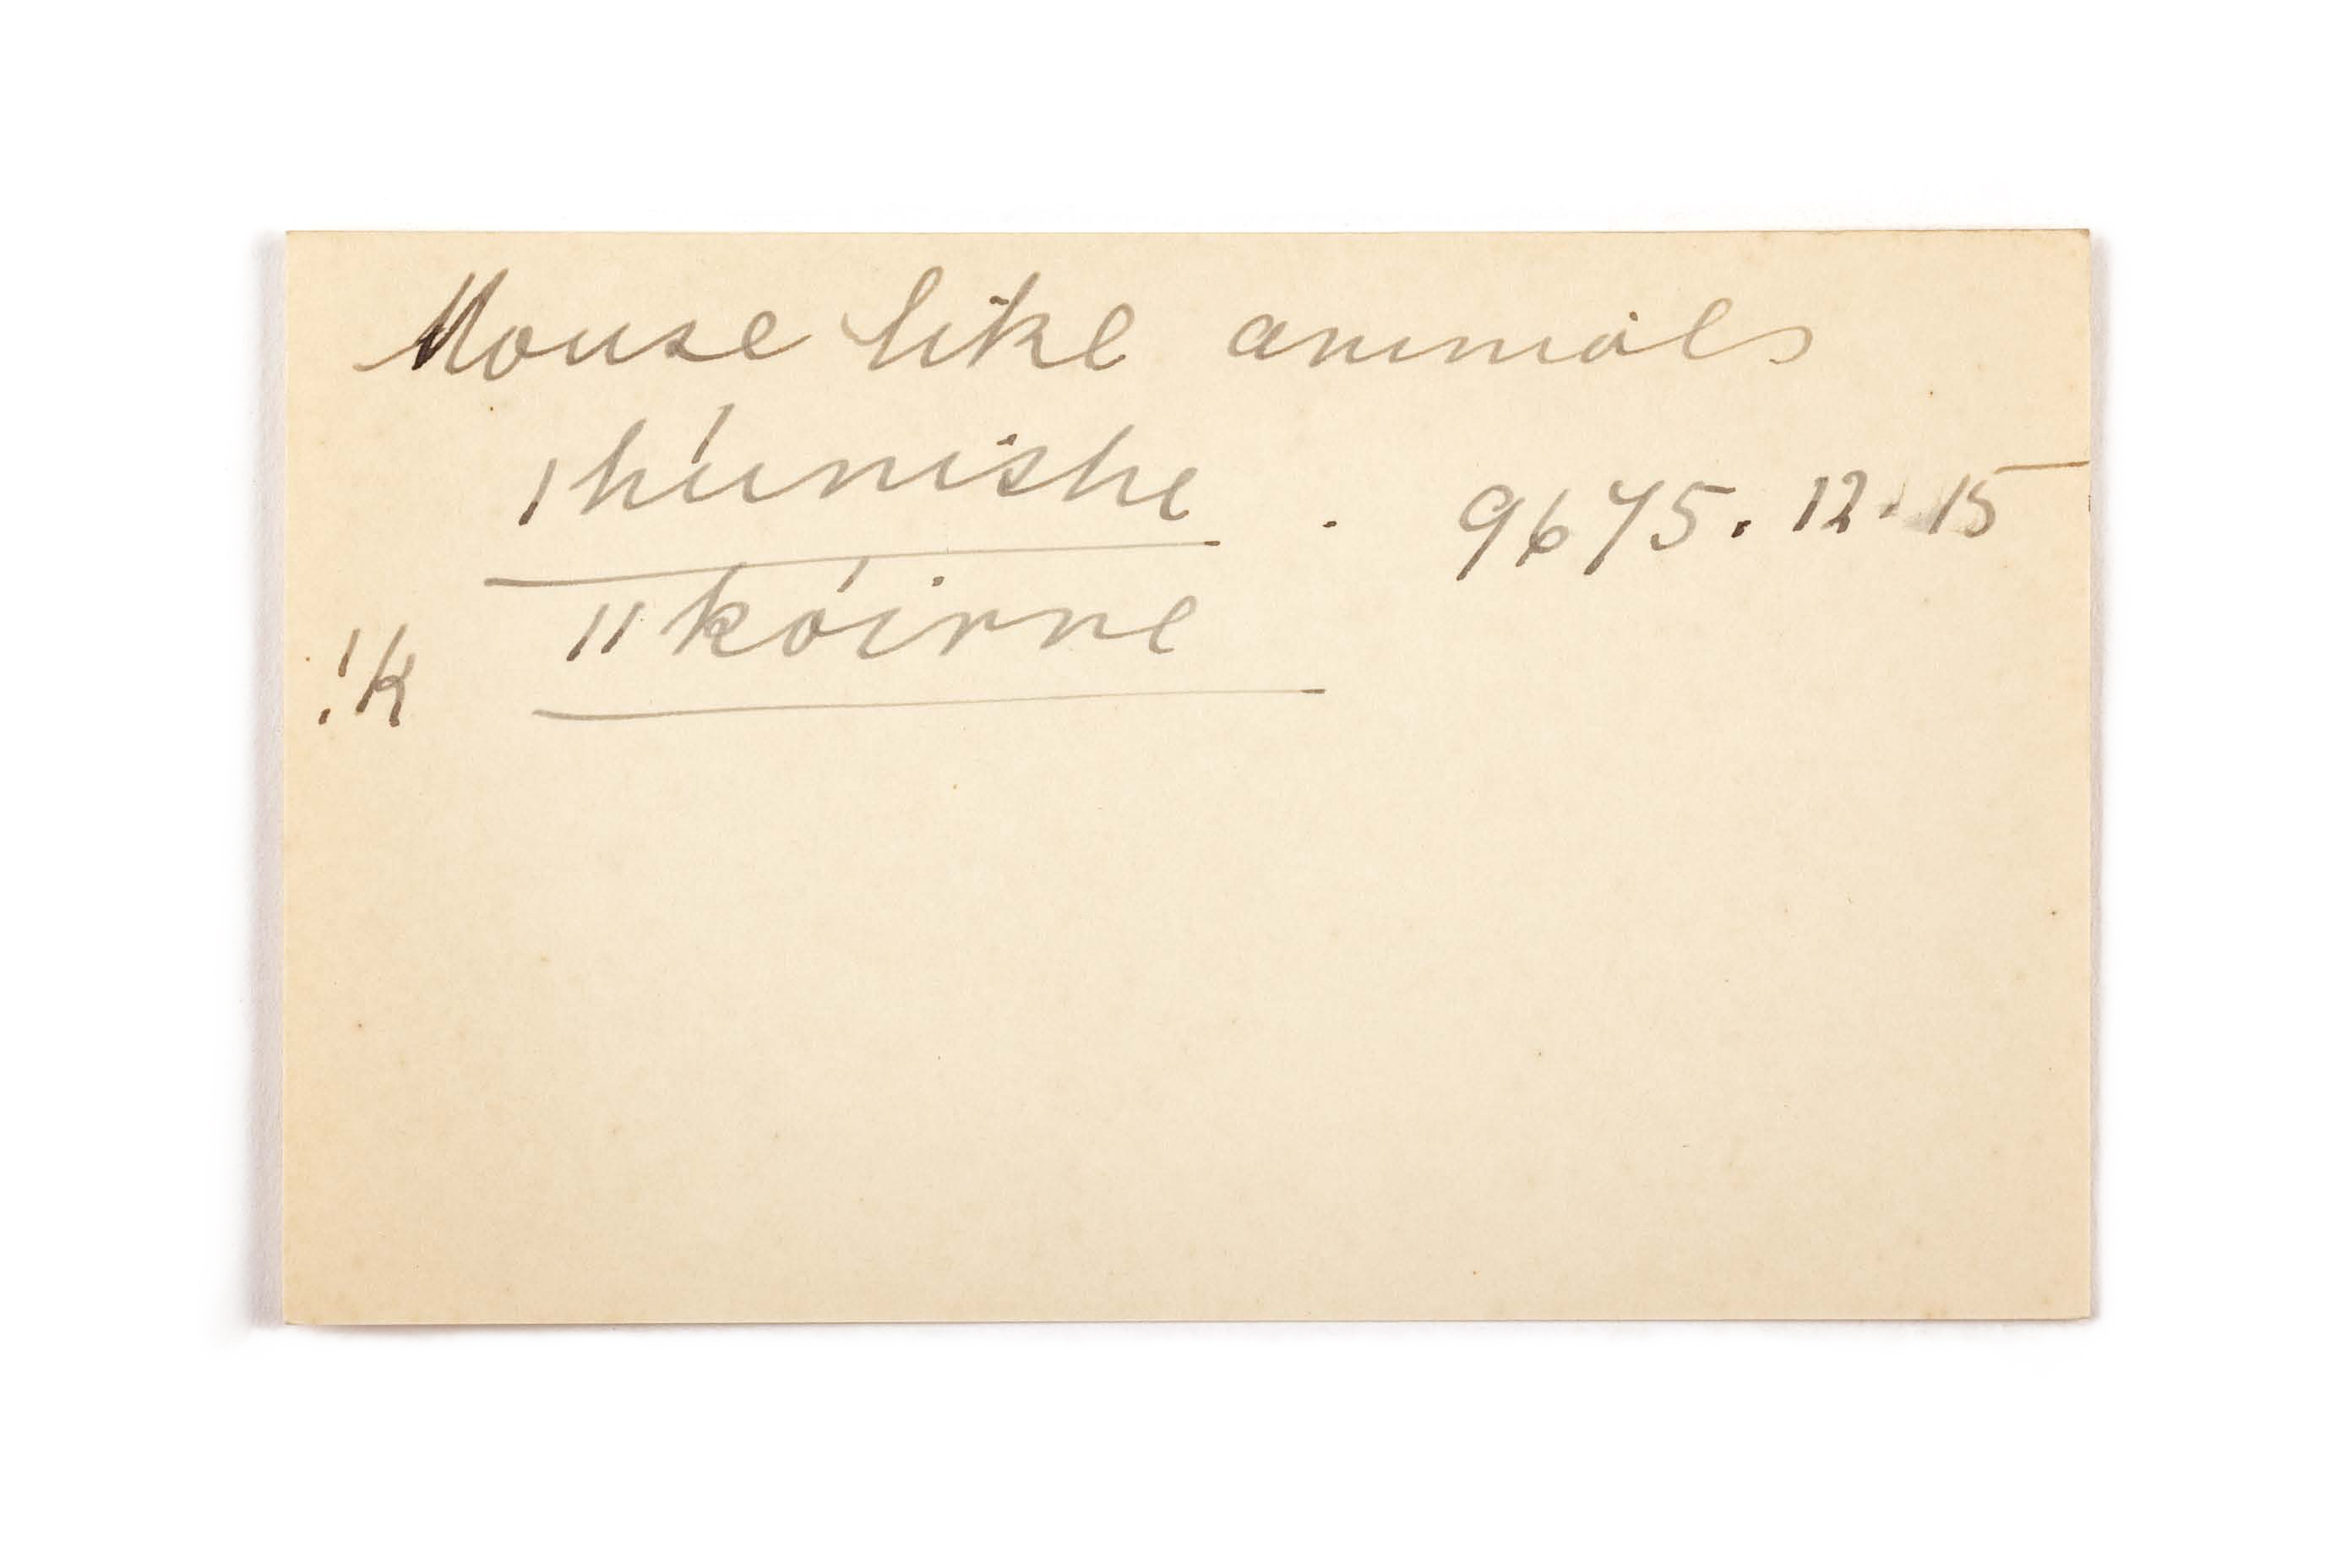 Mouse like animals
|húnishe . 9675. 12. 15
!k ||kóirne